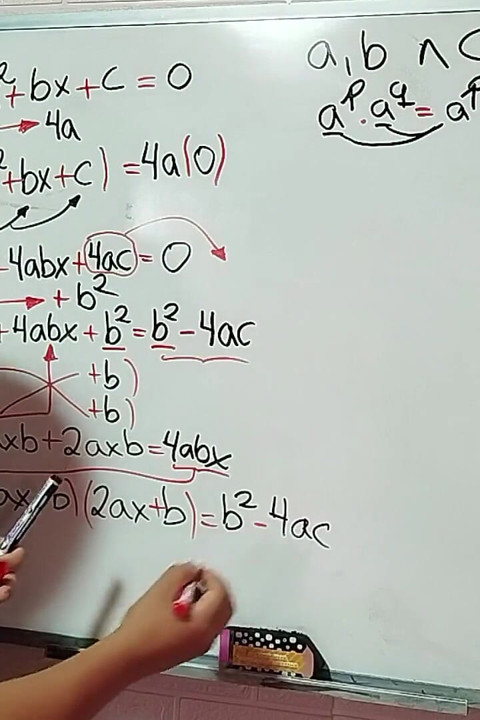 ²+bx+c=0
→4a
²+bx+c)=4a(0)
-4abx+4ac=0
→+b²
+4abx+b²=b²-4ac
+b)
+b)
axb+2axb=4abx
ax+b)(2ax+b)=b²-4ac
a,b ∧ c
aᵖ·a𐞥=aᵖ